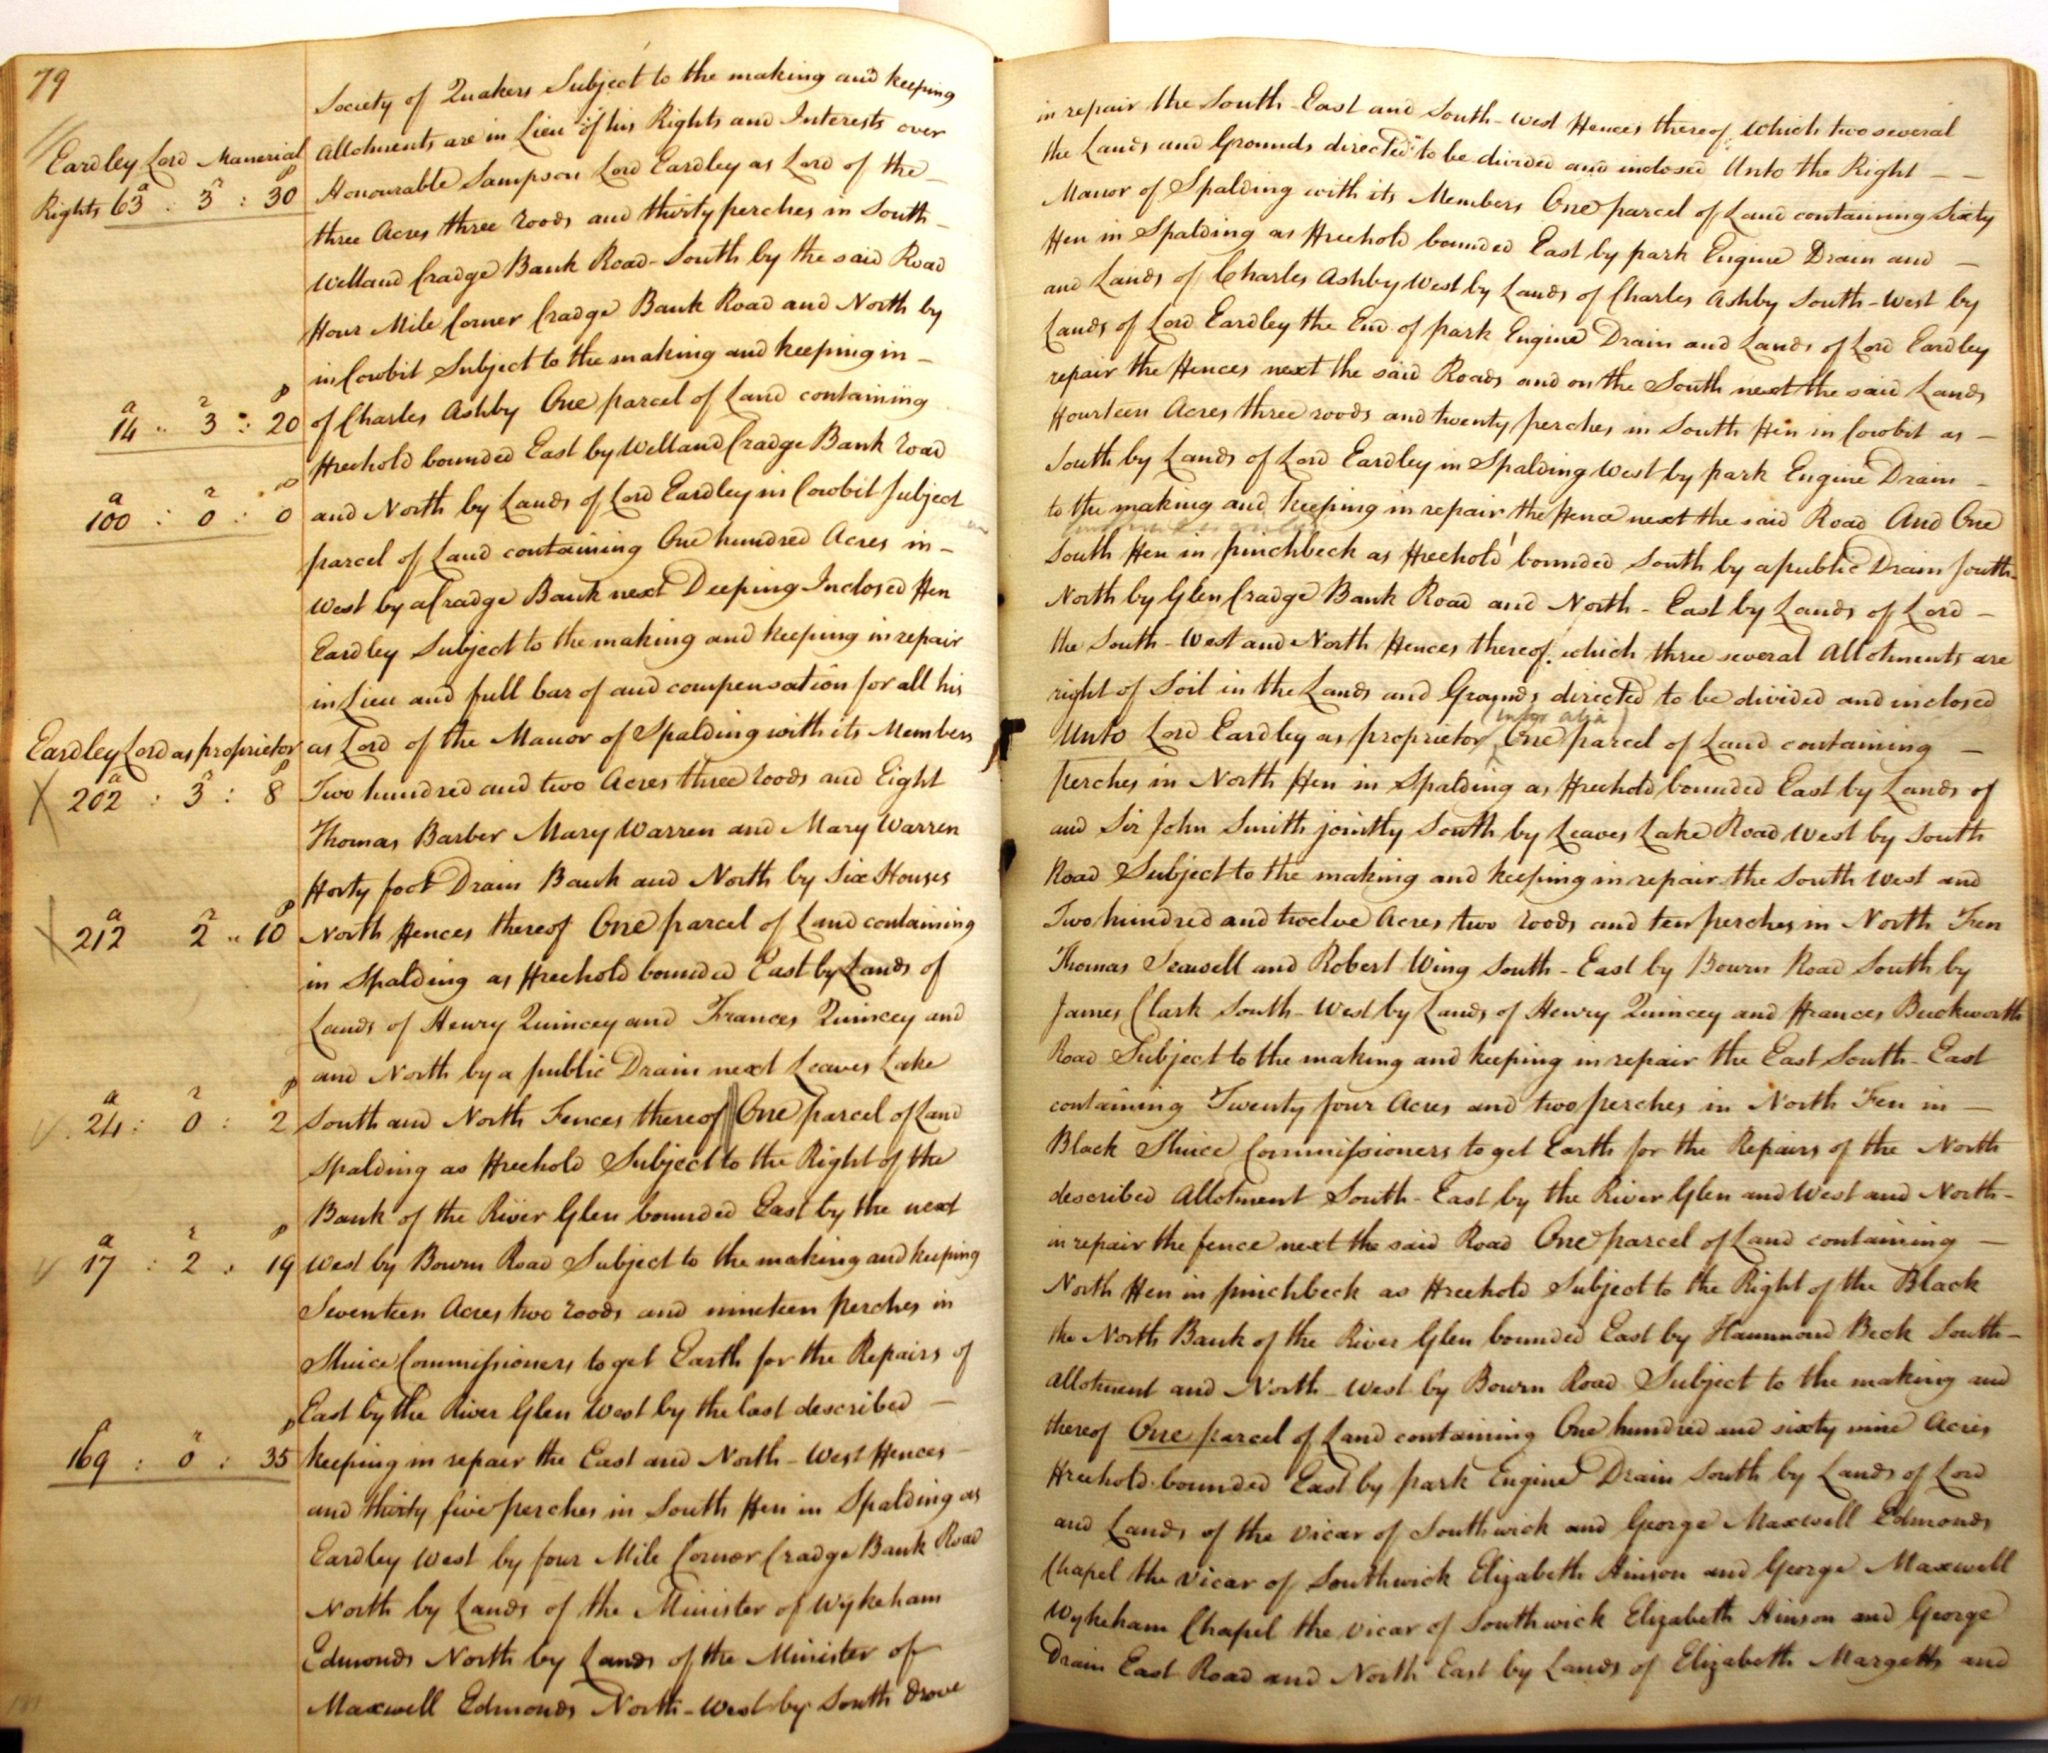 79
Society of Quakers Subject to the making and keeping in repair the South-East and South-West Fences thereof which two several
Allotments are in Lieu of his Rights and Interests over the Lands and Grounds directed to be divided and inclosed Unto the Right
Eardley Lord Manerial
Rights 63a : 3r : 30p
Honourable Sampson Lord Eardley as Lord of the Manor of Spalding with its Members One parcel of Land containing Sixty
three Acres three roods and thirty perches in South Fen in Spalding as Freehold bounded East by park Engine Drain and
Welland Cradge Bank Road South by the said Road and Lands of Charles Ashby West by Lands of Charles Ashby South-West by
Four Mile Corner Cradge Bank Road and North by Lands of Lord Eardley the End of park Engine Drain and Lands of Lord Eardley
in Cowbit Subject to the making and keeping in repair the Fences next the said Roads and on the South next the said Lands
14a : 3r : 20p
of Charles Ashby One parcel of Land containing Fourteen Acres three roods and twenty perches in South Fen in Cowbit as
Freehold bounded East by Welland Cradge Bank road South by Lands of Lord Eardley in Spalding West by park Engine Drain
100a : 0r : 0p
and North by Lands of Lord Eardley in Cowbit Subject to the making and keeping in repair the Fence next the said Road And One
parcel of Land containing One hundred Acres in South Fen in pinchbeck as Freehold bounded South by a public Drain South
West by a Cradge Bank next Deeping Inclosed Fen North by Glen Cradge Bank Road and North-East by Lands of Lord
Eardley Subject to the making and keeping in repair the South-West and North Fences thereof which three several Allotments are
in Lieu and full bar of and compensation for all his right of Soil in the Lands and Grounds directed to be divided and inclosed
(inter alia)
Eardley Lord as proprietor
as Lord of the Manor of Spalding with its Members Unto Lord Eardley as proprietor One parcel of Land containing
202a : 3r : 8p
Two hundred and two Acres three roods and Eight perches in North Fen in Spalding as Freehold bounded East by Lands of
Thomas Barber Mary Warren and Mary Warren and Sir John Smith jointly South by Leaves Lake Road West by South
Forty foot Drain Bank and North by Six Houses Road Subject to the making and keeping in repair the South West and
212a 2r 10p
North Fences thereof One parcel of Land containing Two hundred and twelve Acres two roods and ten perches in North Fen
in Spalding as Freehold bounded East by Lands of Thomas Seawell and Robert Wing South-East by Bourn Road South by
Lands of Henry Quincey and Frances Quincey and James Clark South-West by Lands of Henry Quincey and Frances Buckworth
and North by a public Drain next Leaves Lake Road Subject to the making and keeping in repair the East South-East
24a : 0r : 2p
South and North Fences thereof One parcel of Land containing Twenty four Acres and two perches in North Fen in
Spalding as Freehold Subject to the Right of the Black Sluice Commissioners to get Earth for the Repairs of the North
Bank of the River Glen bounded East by the next described Allotment South-East by the River Glen and West and North-
17a : 2r : 19p
West by Bourn Road Subject to the making and keeping in repair the fence next the said Road One parcel of Land containing
Seventeen Acres two roods and nineteen perches in North Fen in pinchbeck as Freehold Subject to the Right of the Black
Sluice Commissioners to get Earth for the Repairs of the North Bank of the River Glen bounded East by Hammond Beck South-
East by the River Glen West by the last described allotment and North-West by Bourn Road Subject to the making and
169a : 0r : 35p
keeping in repair the East and North-West Fences thereof One parcel of Land containing One hundred and sixty nine Acres
and thirty five perches in South Fen in Spalding as Freehold bounded East by park Engine Drain South by Lands of Lord
Eardley West by four Mile Corner Cradge Bank Road and Lands of the Vicar of Southwick and George Maxwell Edmonds
North by Lands of the Minister of Wykeham Chapel the Vicar of Southwick Elizabeth Hinson and George Maxwell
Edmonds North by Lands of the Minister of Wykeham Chapel the Vicar of Southwick Elizabeth Hinson and George
Maxwell Edmonds North-West by South Drove Drain East Road and North East by Lands of Elizabeth Margetts and